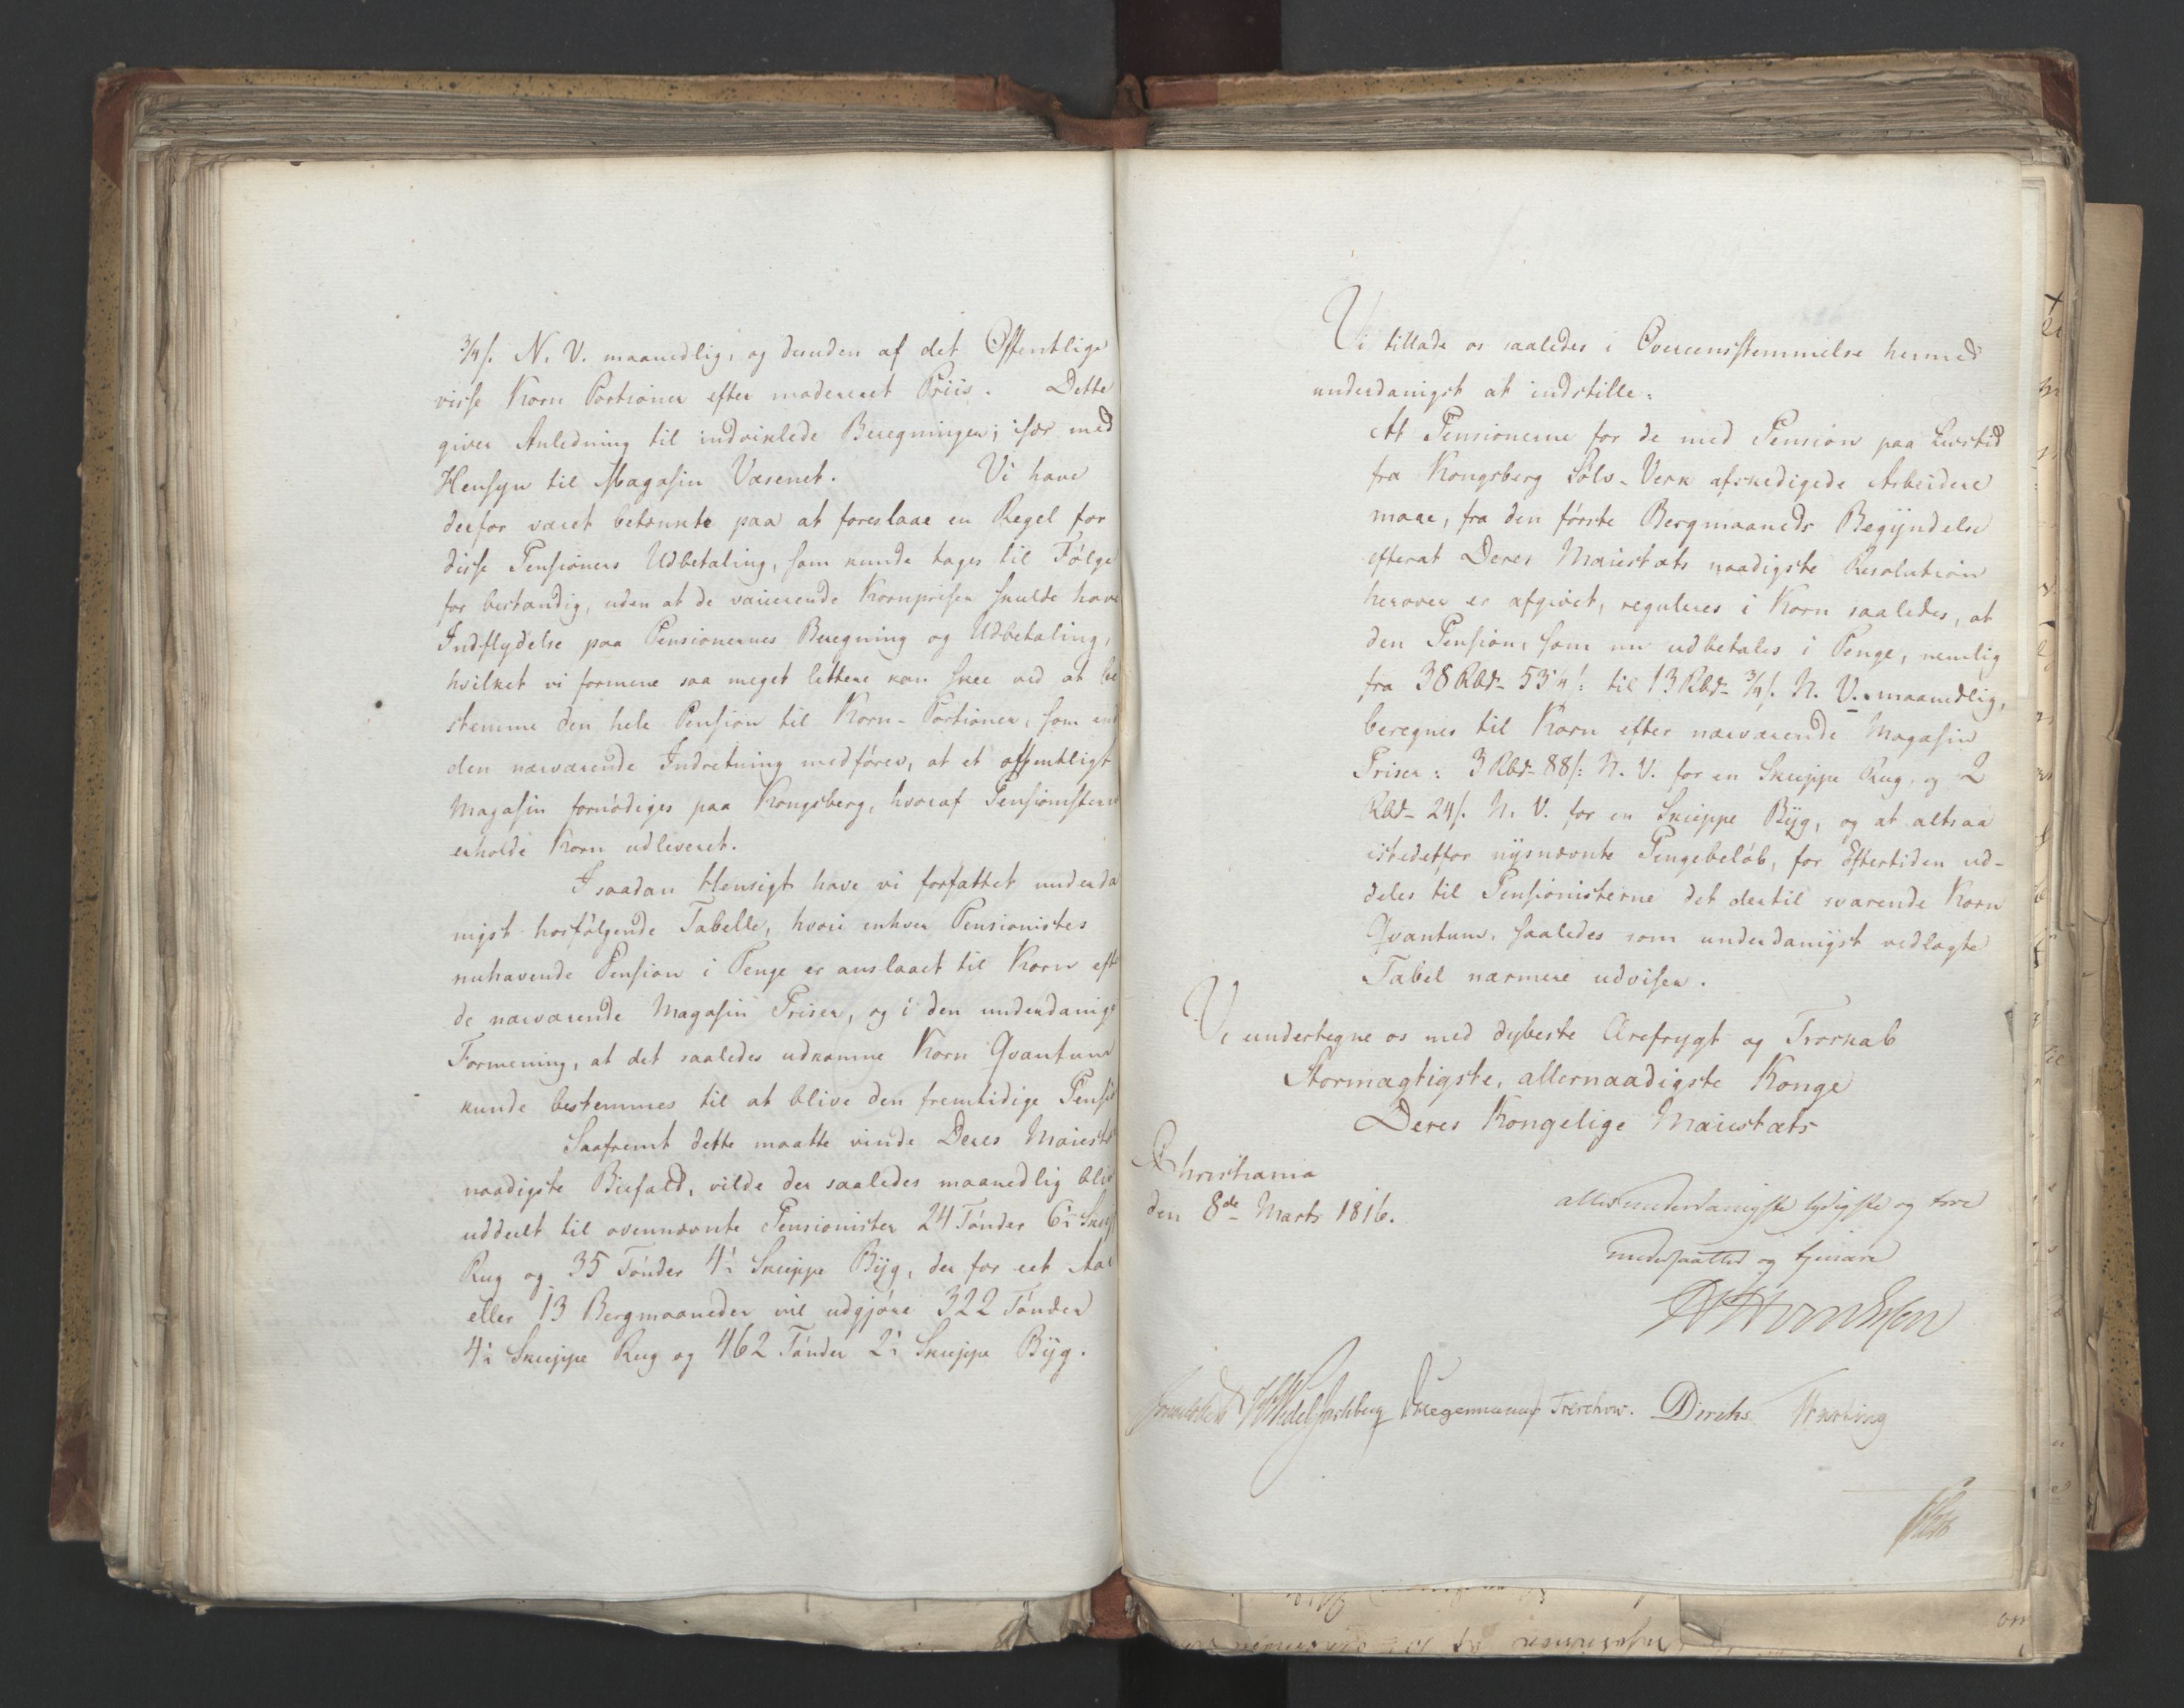 3/4 s. N. V. maanedlig, og desuden af det Offentlige
visse Korn Portioner efter modereret Priis. Dette
giver Anledning til indviklede Beregninger, især med
Hensyn til Magasin Væsenet. Vi have
derfor været betænkte paa at foreslaae en Regel for
disse Pensioners Udbetaling, som kunde tages til Følge
for bestandig, uden at de varierende Kornpriser skulde have
Indflydelse paa Pensionernes Beregning og Udbetaling,
hvilket vi formene saa meget lettere kan skee ved at be
stemme den hele Pension til Korn-Portioner, som
den nærværende Indretning medfører, at et offentligt
Magasin fornødiges paa Kongsberg, hvoraf Pensionisterne
erholde Korn udleveret.
I saadan Hensigt have vi forfattet underda
nigst hosfølgende Tabelle, hvori enhver Pensionistes
nuhavende Pension i Penge er anslaaet til Korn eft
de nærværende Magasin Priser, og i den underdanige
Formening, at det saaledes udkomne Korn Qvantum
kunde bestemmes til at blive den fremtidige Pensi
Saafremt dette maatte vinde Deres Maiestæ
naadigste Biefald, vilde der saaledes maanedlig bliv
uddeelt til ovennævnte Pensionister 24 Tønder 6½ Skiep
Rug og 35 Tønder 4½ Skieppe Byg, der for eet Aar
eller 13 Bergmaaneder vil udgjøre 322 Tønder
4½ Skieppe Rug og 462 Tønder 2½ Skieppe Byg.
Vi tillade os saaledes i Overeensstemmelse hermed
underdanigst at indstille:
At Pensionerne for de med Pension paa Livstid
fra Kongsberg Sølv-Verk afskedigede Arbeidere
maae, fra den første Bergmaaneds Begyndelse
efterat Deres Maiestæts naadigste Resolution
herover er afgivet, reguleres i Korn saaledes, at
den Pension, som nu udbetales i Penge, nemlig
fra 38 Rbd- 53¼ s: til 13 Rbd- 3/4 s. N. V. maanedlig,
beregnes til Korn efter nærværende Magasin
Priser: 3 Rbd- 88 s: N. V. for en Skieppe Rug, og 2
Rbd- 24 s. N. V. for en Skieppe Byg, og at altsaa
istedetfor nysnævnte Pengebeløb, for Eftertiden ud-
deles til Pensionisterne det dertil svarende Korn
Qvantum, saaledes som underdanigst vedlagte
Tabel nærmere udviser.
Vi undertegne os med dybeste Ærefrygt og Troskab
Stormægtigste, allernaadigste Konge
Deres Kongelige Maiestæts
Christiania
den 8de Marts 1816.
allerunderdanigste lydigste og troe
undersaatter og tjenere
Sommerhielm HWedel Jarlsberg Krregermann Treschow. Diriks Hertzberg